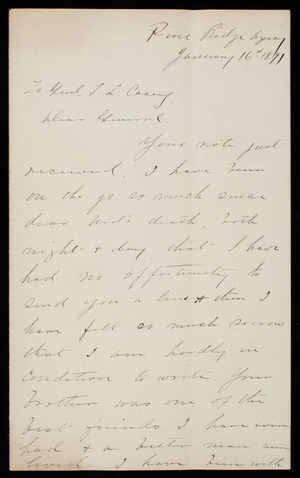 Pine Ridge Agency
January 16th 1891
To Genl T L Casey,
Dear General.
Your note just
received. I have been
on the go so much since
dear Ned's death, both
night & day, that I have
had no opportunity to
send you a line & then I
have felt so much sorrow
that I am hardly in
condition to write. Your
brother was one of the
best friends I have ever
had & a better man never
lived. I have been with